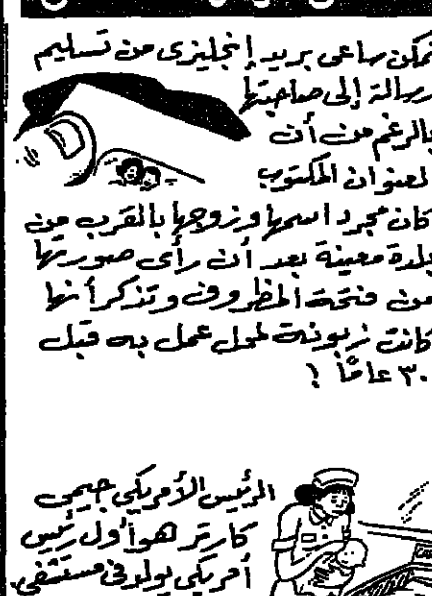 تمكن ساعى بريد إنجليزى من تسليم
رسالة إلى صاحبتها
بالرغم من أن
العنوان المكتوب
كان مجرد اسمها وزوجها بالقرب من
بلدة معينة بعد أن رأى صورتها
من فتحة المظروف وتذكر أنها
كانت زبونة لمحل عمل به قبل
٣٠ عامًا !
الرئيس الأمريكي جيمي
كارتر هو أول رئيس
أمريكي يولد فى مستشفى